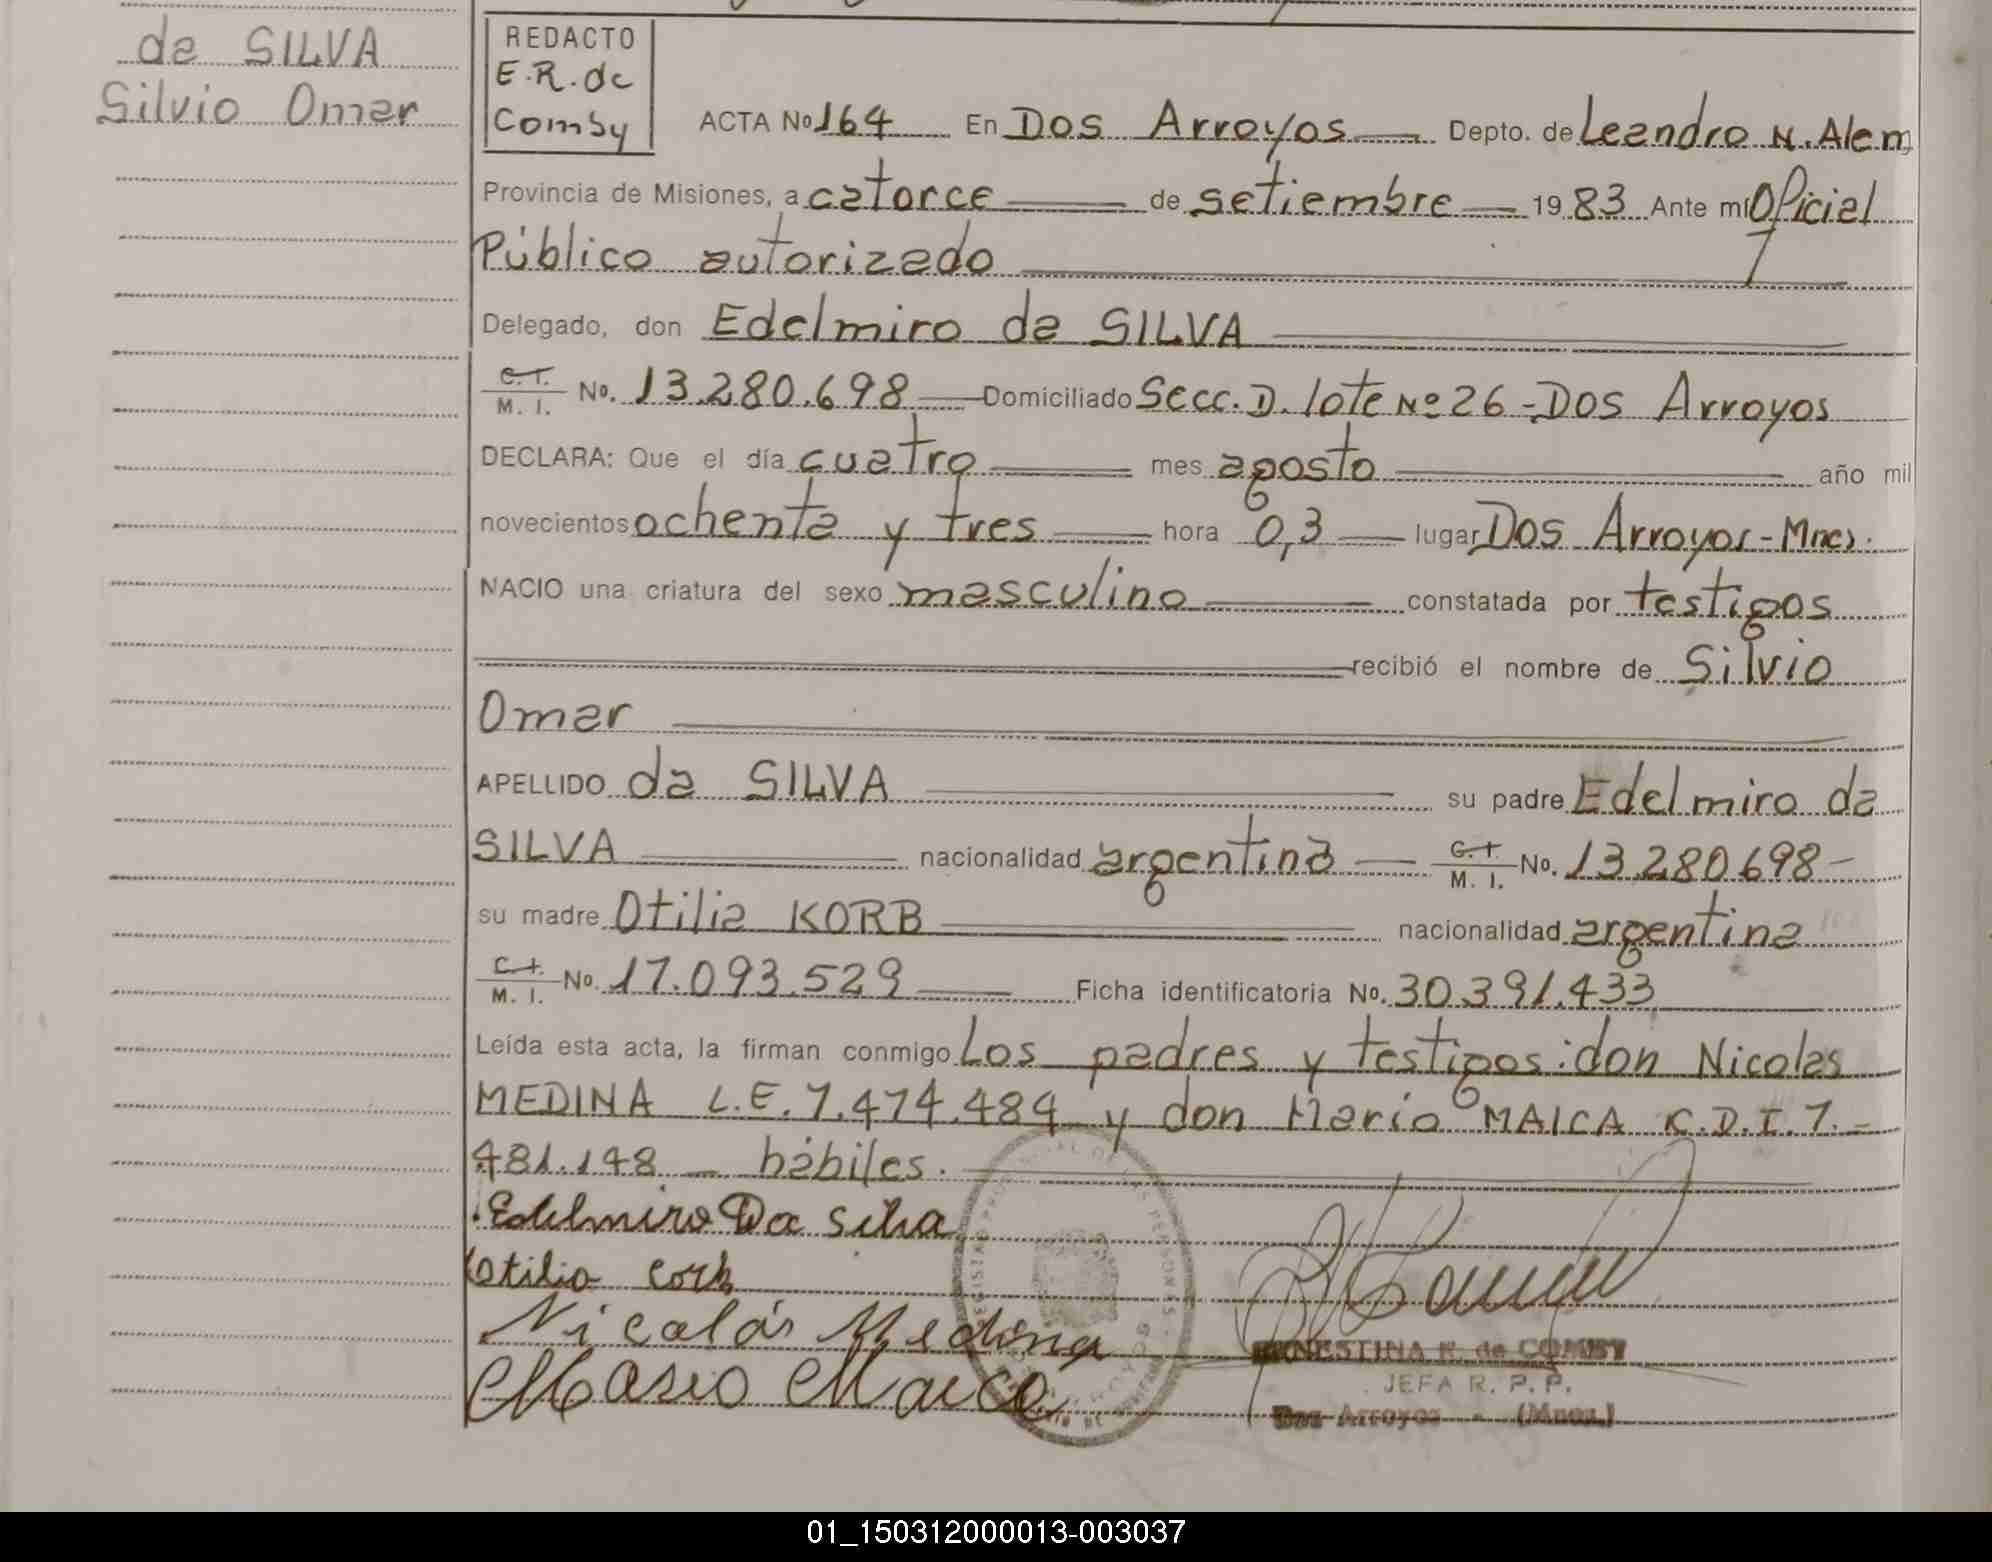 da SILVA
Silvio Omar
REDACTO
E.R. de
Comby
ACTA No 164 En Dos Arroyos Depto. de Leandro N. Alem
Provincia de Misiones, a catorce de setiembre 1983 Ante mí Oficial
Público autorizado
Delegado, don Edelmiro da SILVA
C.I. M. I. No. 13.280.698 Domiciliado Secc. D. lote Nº 26 - Dos Arroyos
DECLARA: Que el día cuatro mes agosto año mil
novecientos ochenta y tres hora 0,3 lugar Dos Arroyos - Mnes.
NACIO una criatura del sexo masculino constatada por testigos
recibió el nombre de Silvio
Omar
APELLIDO da SILVA su padre Edelmiro da
SILVA nacionalidad argentina C.I. M. I. No. 13.280.698-
su madre Otilia KORB nacionalidad argentina
C.I. M. I. No. 17.093.529 Ficha identificatoria No. 30.391.433
Leída esta acta, la firman conmigo Los padres y testigos: don Nicolas
MEDINA L.E. 7.474.484 y don Mario MAICA C.D.I. 7.-
481.148 - hábiles.
Edelmiro Da Silva
Otilia Corb
Nicolás Medina
Mario Maica
ERNESTINA R. de COMBY
JEFA R. P. P.
Dos Arroyos - (Mnes.)
01_150312000013-003037